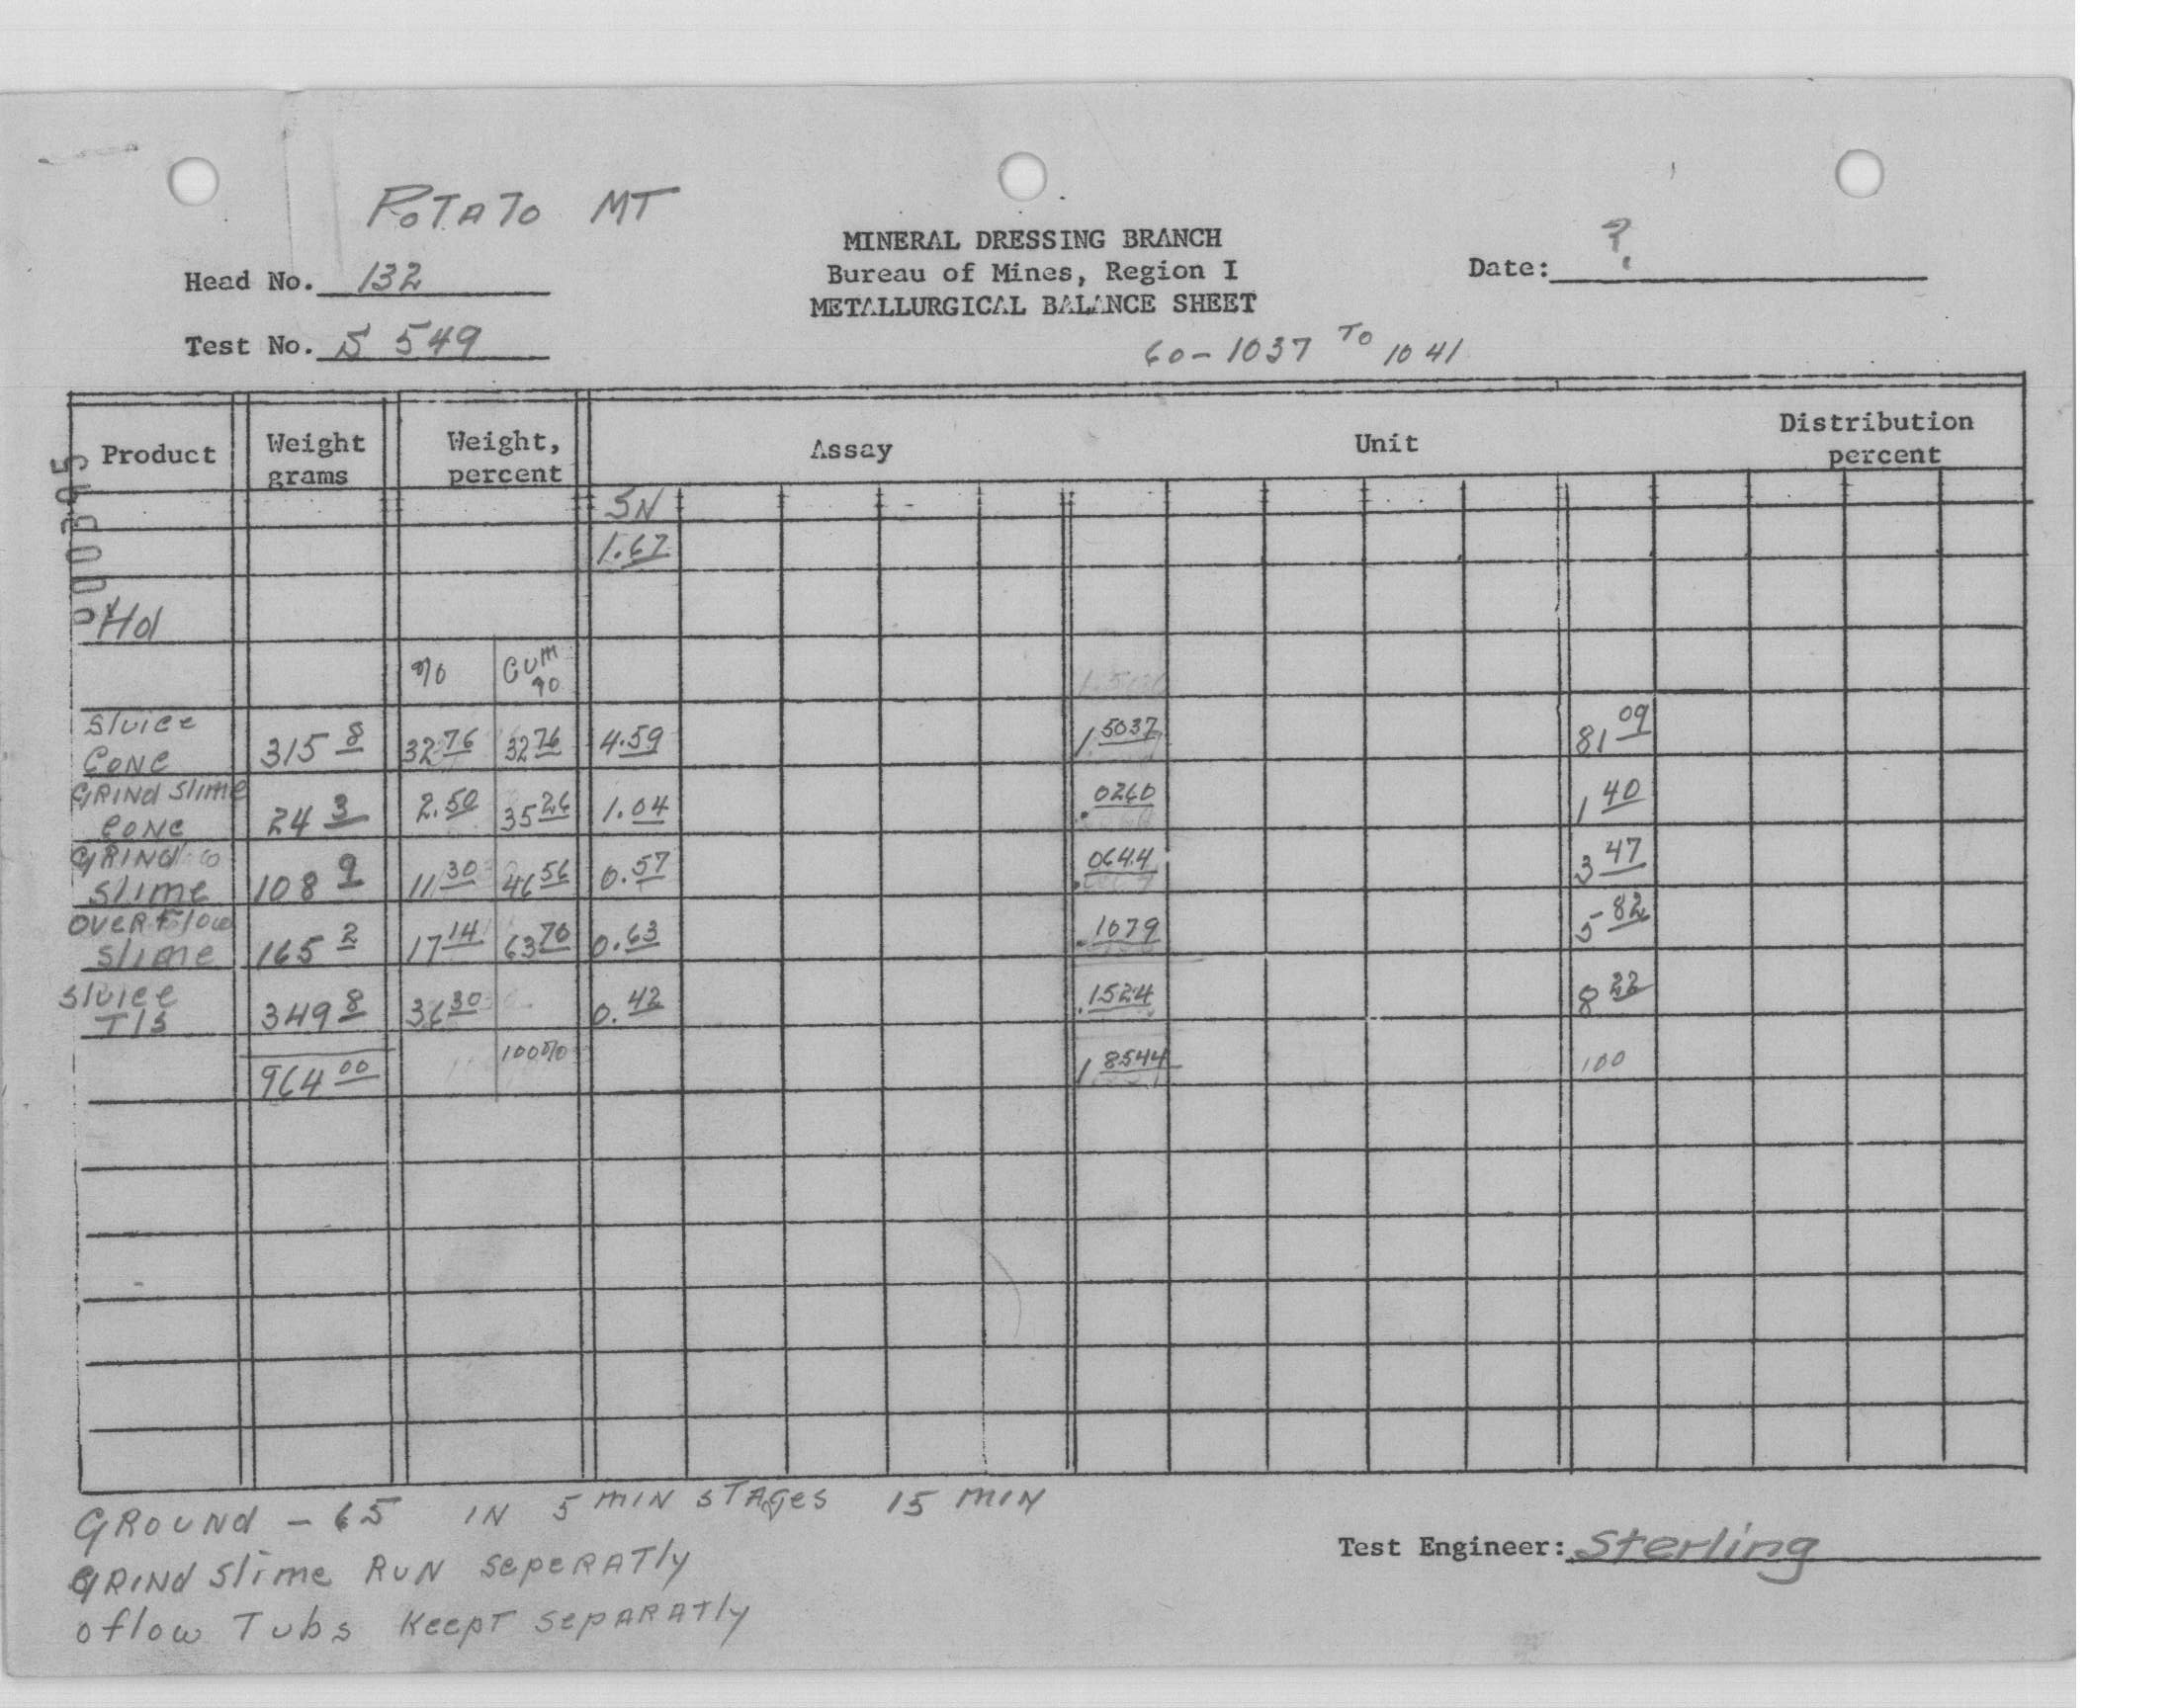 POTATO MT
MINERAL DRESSING BRANCH
Bureau of Mines, Region I
METALLURGICAL BALANCE SHEET
Head No. 132
Date: ?
Test No. S 549
60-1037 TO 1041
Product Weight grams Weight, percent Assay Unit Distribution percent
SN
1.67
Hd
% Cum %
Sluice Conc 315 8 32 76 32 76 4.59 1 5037 81 09
GRINd Slime Conc 24 3 2.50 35 26 1.04 .0260 1 40
GRINd Slime 108 9 11 30 46 56 0.57 .0644 3 47
OVERFlow Slime 165 2 17 14 63 70 0.63 .1079 5 82
Sluice Tls 349 8 36 30 0.42 .1524 8 22
964 00 100% 1 8544 100
000395
GROUNd - 65 IN 5 MIN STAGes 15 MIN
GRINd Slime RUN SepeRATly
oflow Tubs KeepT SepARATly
Test Engineer: Sterling